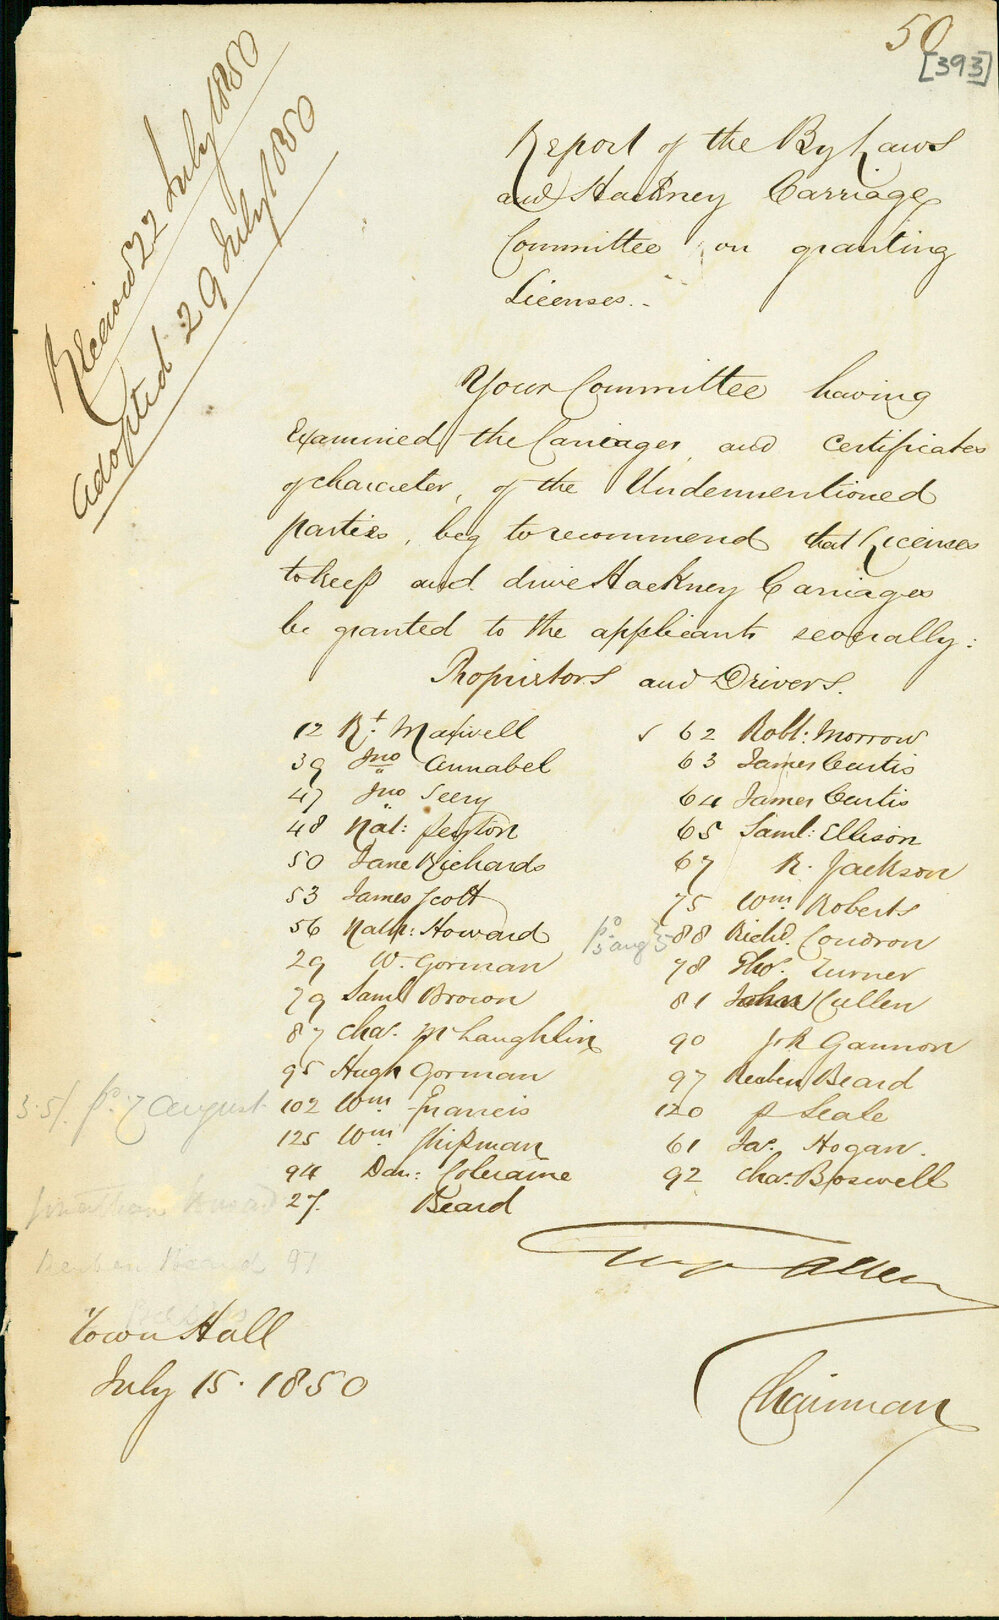 50
[393]
Received 22 July 1850
Adopted 29 July 1850
Report of the By Laws
and Hackney Carriage
Committee on granting
Licenses..
Your Committee having
Examined the Carriages, and Certificates
of character, of the Undermentioned
parties, beg to recommend that Licenses
to keep and drive Hackney Carriages
be granted to the applicants severally:
Proprietors and Drivers.
12 Rt Maxwell
39 Jno Annabel
47 Jno Seery
48 Nat: Peyton
50 Jane Richards
53 James Scott
56 Nath: Howard
29 W. Gorman
79 Saml Brown
87 Chas. McLaughlin
95 Hugh Gorman
3.5/. Po. 7 August
102 Wm Francis
125 Wm Shipman
94 Dan: Coleraine
27. Beard
62 Robt: Morrow
63 James Curtis
64 James Curtis
65 Saml: Ellison
67 R. Jackson
75 Wm Roberts
5 aug
88 Richd. Condron
78 Thos. Turner
81 James Cullen
90 J R Gannon
97 Reuben Beard
120 P Seale
61 Jas. Hogan.
92 Chas. Boswell
Reuben Beard 97
Allen
Chairman
Town Hall
July 15. 1850